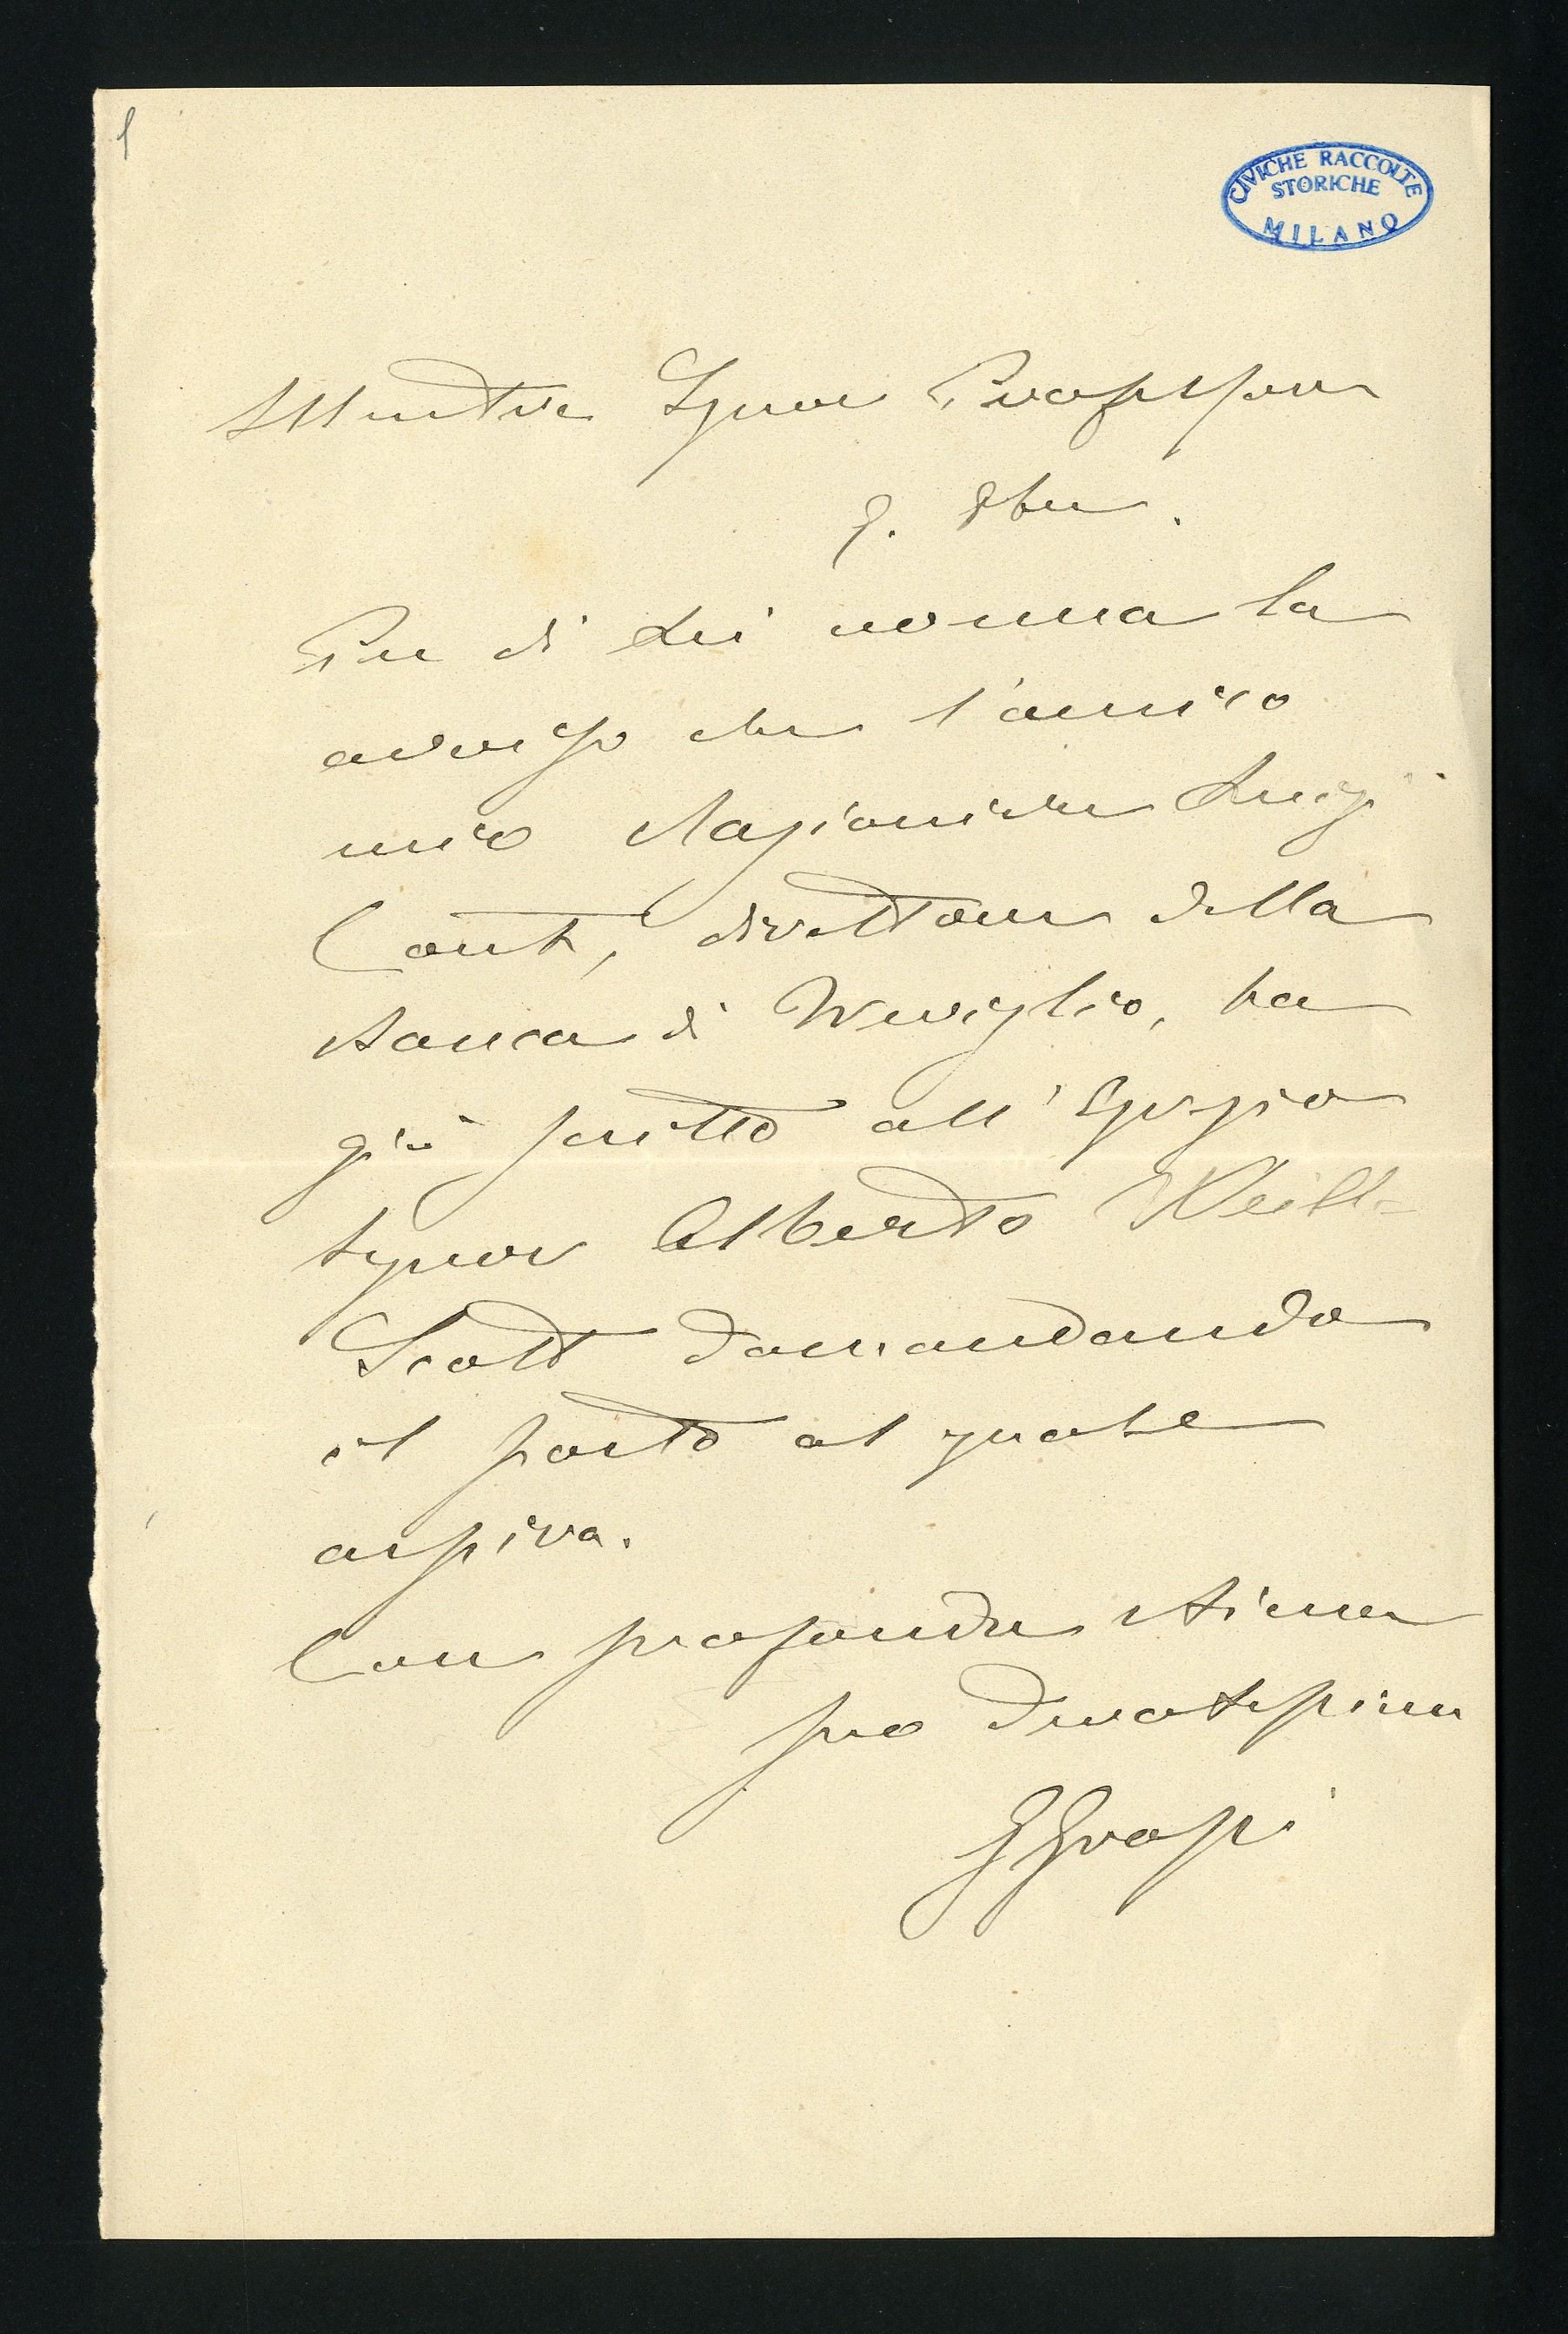 1
CIVICHE RACCOLTE
STORICHE
MILANO
Illustre Signor Professore
G. Ohm.
Per di Lei norma la
avverto che l'amico
mio Ragioniere Luigi
Conti, direttore della
Banca di Treviglio, ha
già scritto all'Egregio
Signor Alberto Weill-
Scott domandando
il posto al quale
aspira.
Con profonda stima
suo devotissimo